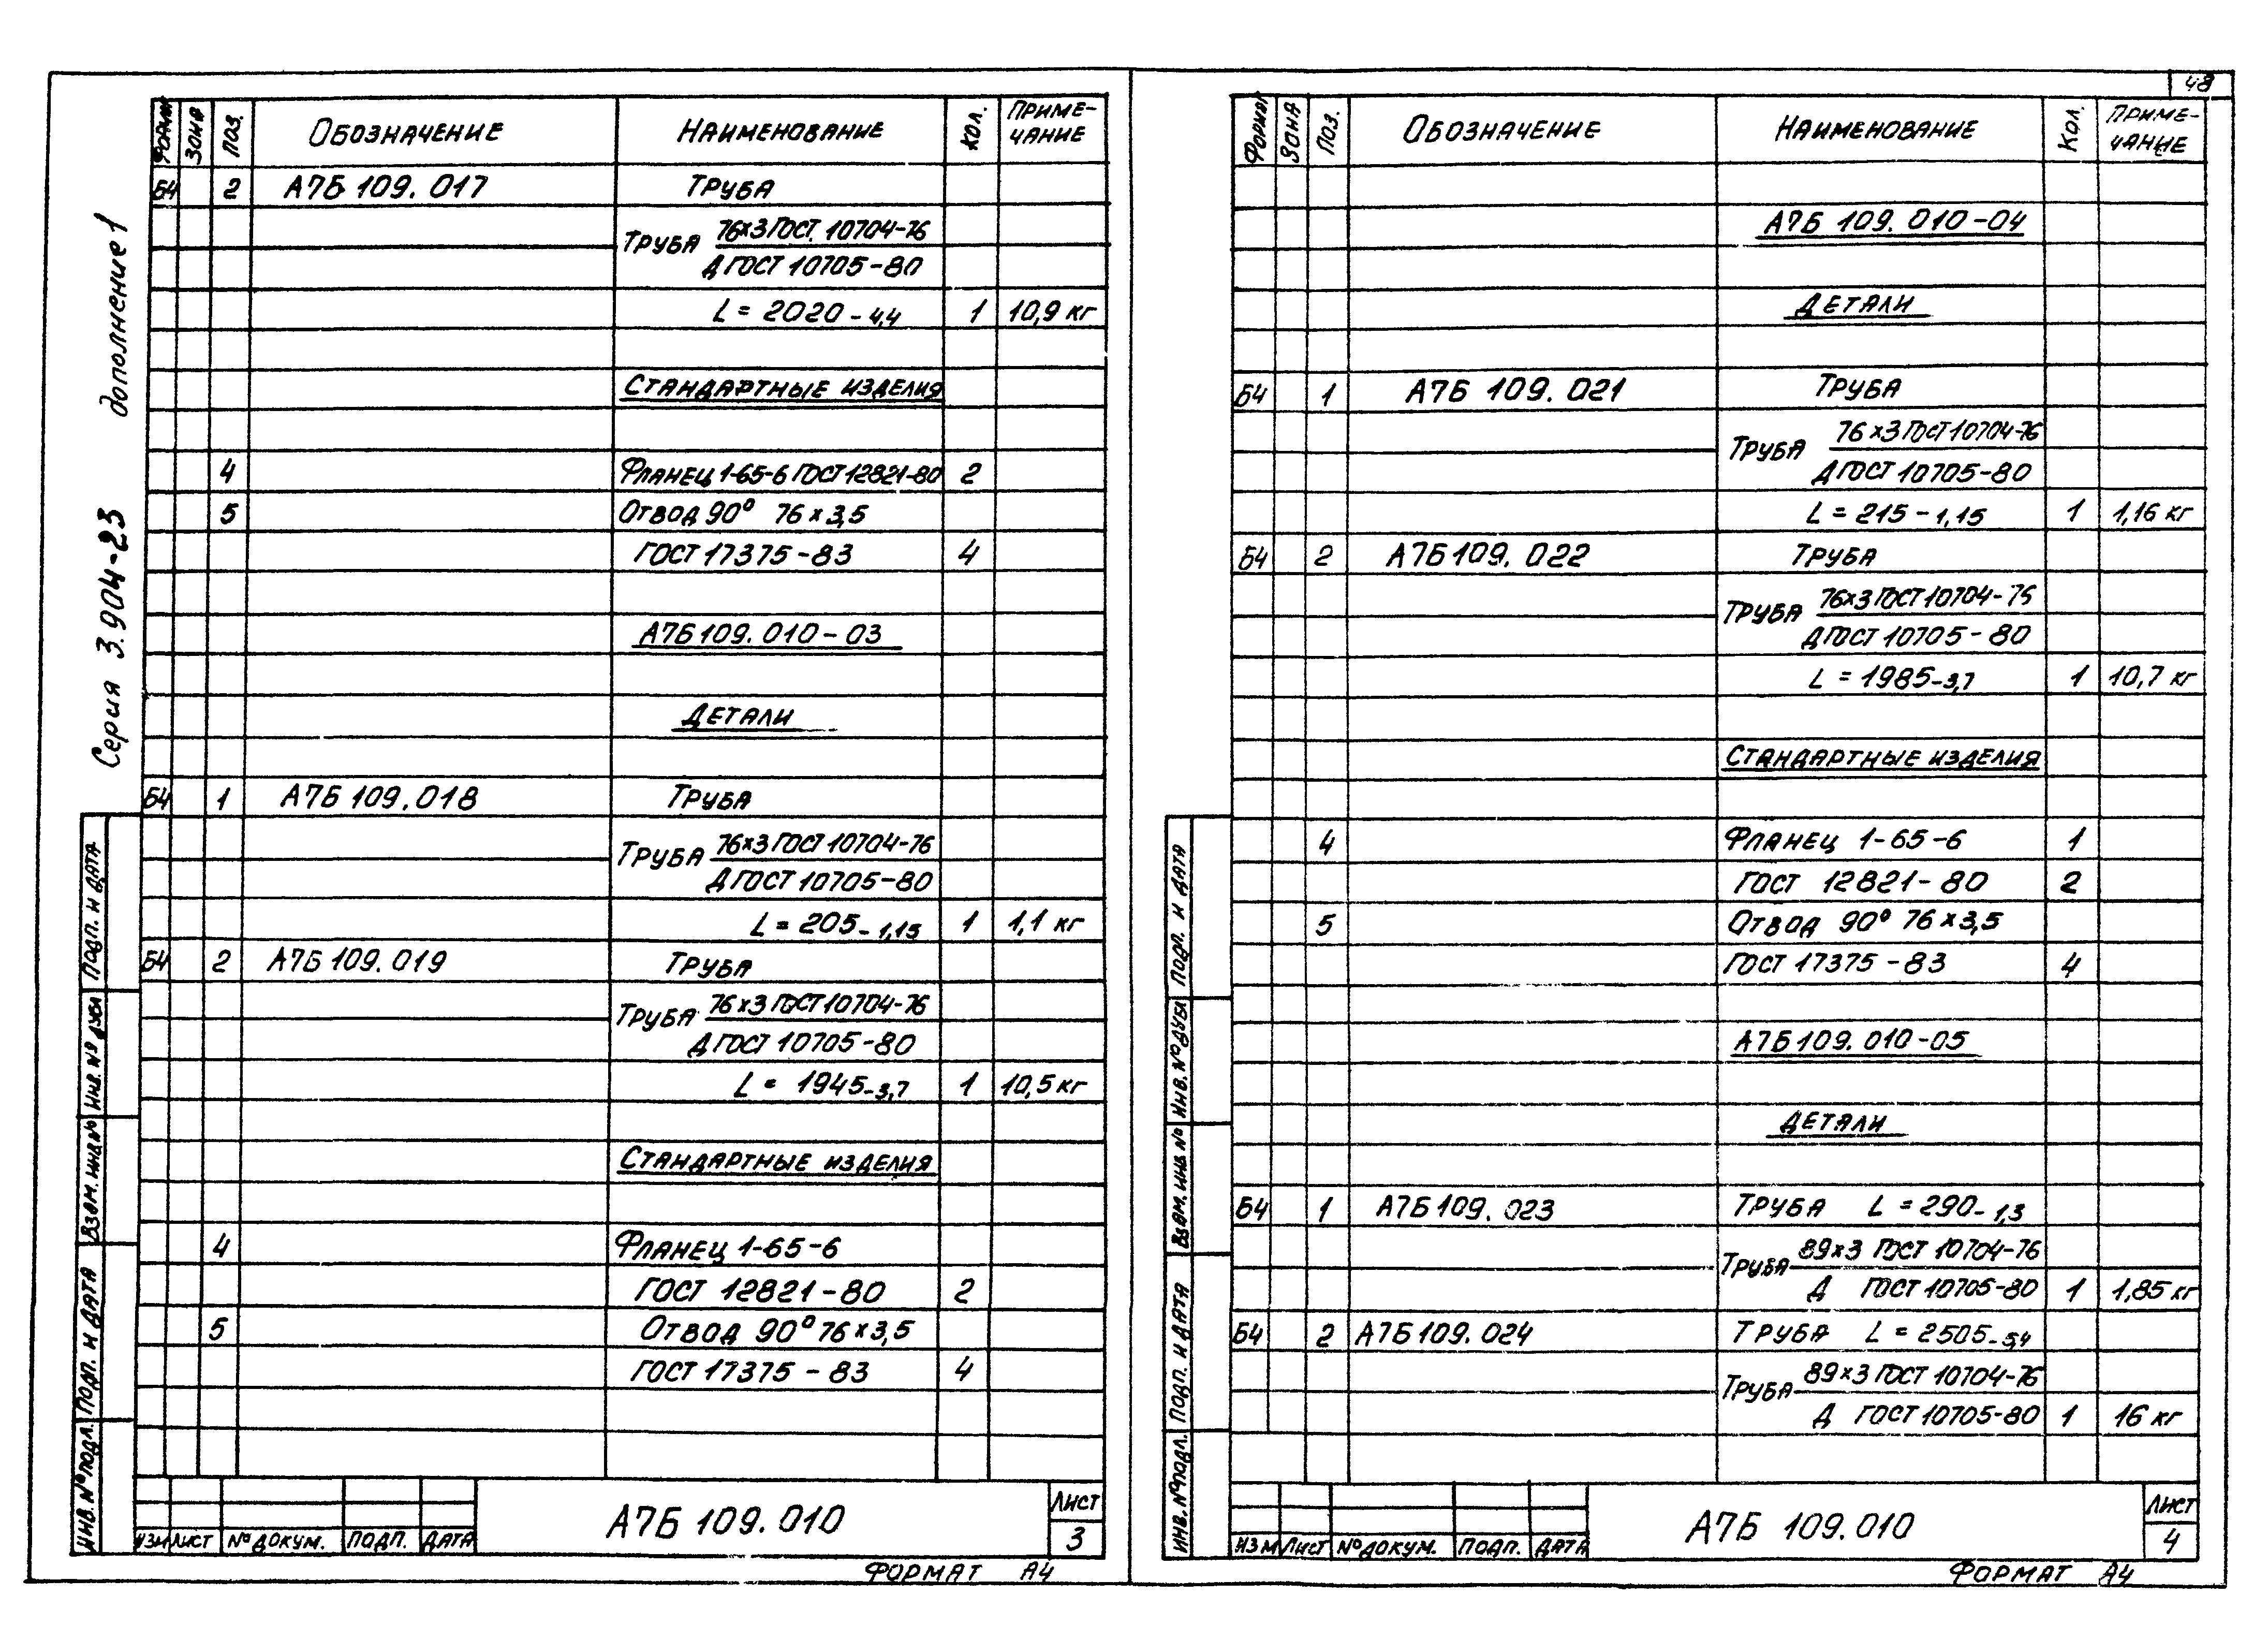 48
Серия 3.904-23 дополнение 1
Формат Зона Поз. Обозначение Наименование Кол. Приме-
чание
Б4 2 А7Б 109.017 Труба
76×3 ГОСТ 10704-76
Труба
Д ГОСТ 10705-80
L = 2020 - 4,4 1 10,9 кг
Стандартные изделия
4 Фланец 1-65-6 ГОСТ 12821-80 2
5 Отвод 90° 76×3,5
ГОСТ 17375-83 4
А7Б 109.010-03
Детали
Б4 1 А7Б 109.018 Труба
76×3 ГОСТ 10704-76
Труба
Д ГОСТ 10705-80
L = 205 - 1,15 1 1,1 кг
Б4 2 А7Б 109.019 Труба
76×3 ГОСТ 10704-76
Труба
Д ГОСТ 10705-80
L = 1945-3,7 1 10,5 кг
Стандартные изделия
4 Фланец 1-65-6
ГОСТ 12821-80 2
5 Отвод 90° 76×3,5
ГОСТ 17375-83 4
Инв. № подл. Подп. и дата Взам. инв № Инв. № дубл Подп. и дата
Изм Лист № докум. Подп. Дата
А7Б 109.010
Лист
3
Формат А4
Формат Зона Поз. Обозначение Наименование Кол. Приме-
чание
А7Б 109.010-04
Детали
Б4 1 А7Б 109.021 Труба
76×3 ГОСТ 10704-76
Труба
Д ГОСТ 10705-80
L = 215 - 1,15 1 1,16 кг
Б4 2 А7Б 109.022 Труба
76×3 ГОСТ 10704-76
Труба
Д ГОСТ 10705-80
L = 1985-3,7 1 10,7 кг
Стандартные изделия
4 Фланец 1-65-6 1
ГОСТ 12821-80 2
5 Отвод 90° 76×3,5
ГОСТ 17375-83 4
А7Б 109.010-05
Детали
Б4 1 А7Б 109.023 Труба L = 290-1,3
89×3 ГОСТ 10704-76
Труба
Д ГОСТ 10705-80 1 1,85 кг
Б4 2 А7Б 109.024 Труба L = 2505-5,4
89×3 ГОСТ 10704-76
Труба
Д ГОСТ 10705-80 1 16 кг
Инв. № подл. Подп. и дата Взам. инв № Инв. № дубл Подп. и дата
Изм Лист № докум. Подп. Дата
А7Б 109.010
Лист
4
Формат А4